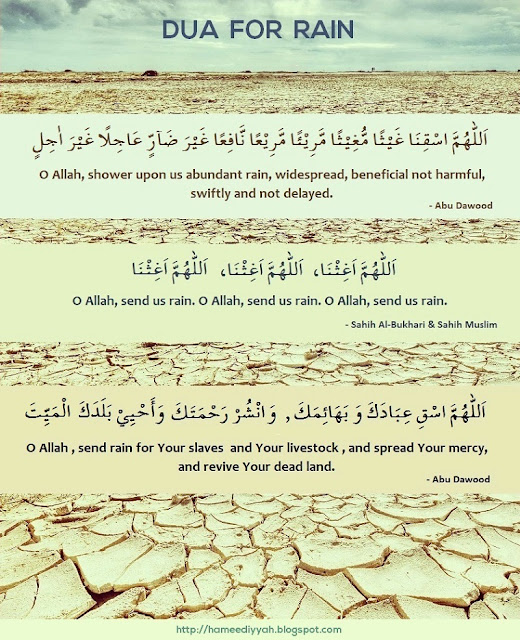 DUA FOR RAIN
اَللّٰهُمَّ اسْقِنَا غَيْثًا مُّغِيْثًا مَّرِيْئًا مَّرِيْعًا نَّافِعًا غَيْرَ ضَآرٍّ عَاجِلًا غَيْرَ اٰجِلٍ
O Allah, shower upon us abundant rain, widespread, beneficial not harmful,
swiftly and not delayed.
- Abu Dawood
اَللّٰهُمَّ اَغِثْنَا، اَللّٰهُمَّ اَغِثْنَا، اَللّٰهُمَّ اَغِثْنَا
O Allah, send us rain. O Allah, send us rain. O Allah, send us rain.
- Sahih Al-Bukhari & Sahih Muslim
اَللّٰهُمَّ اسْقِ عِبَادَكَ وَ بَهَائِمَكَ , وَ انْشُرْ رَحْمَتَكَ وَ أَحْيِيْ بَلَدَكَ الْمَيِّتَ
O Allah , send rain for Your slaves and Your livestock , and spread Your mercy,
and revive Your dead land.
- Abu Dawood
http://hameediyyah.blogspot.com